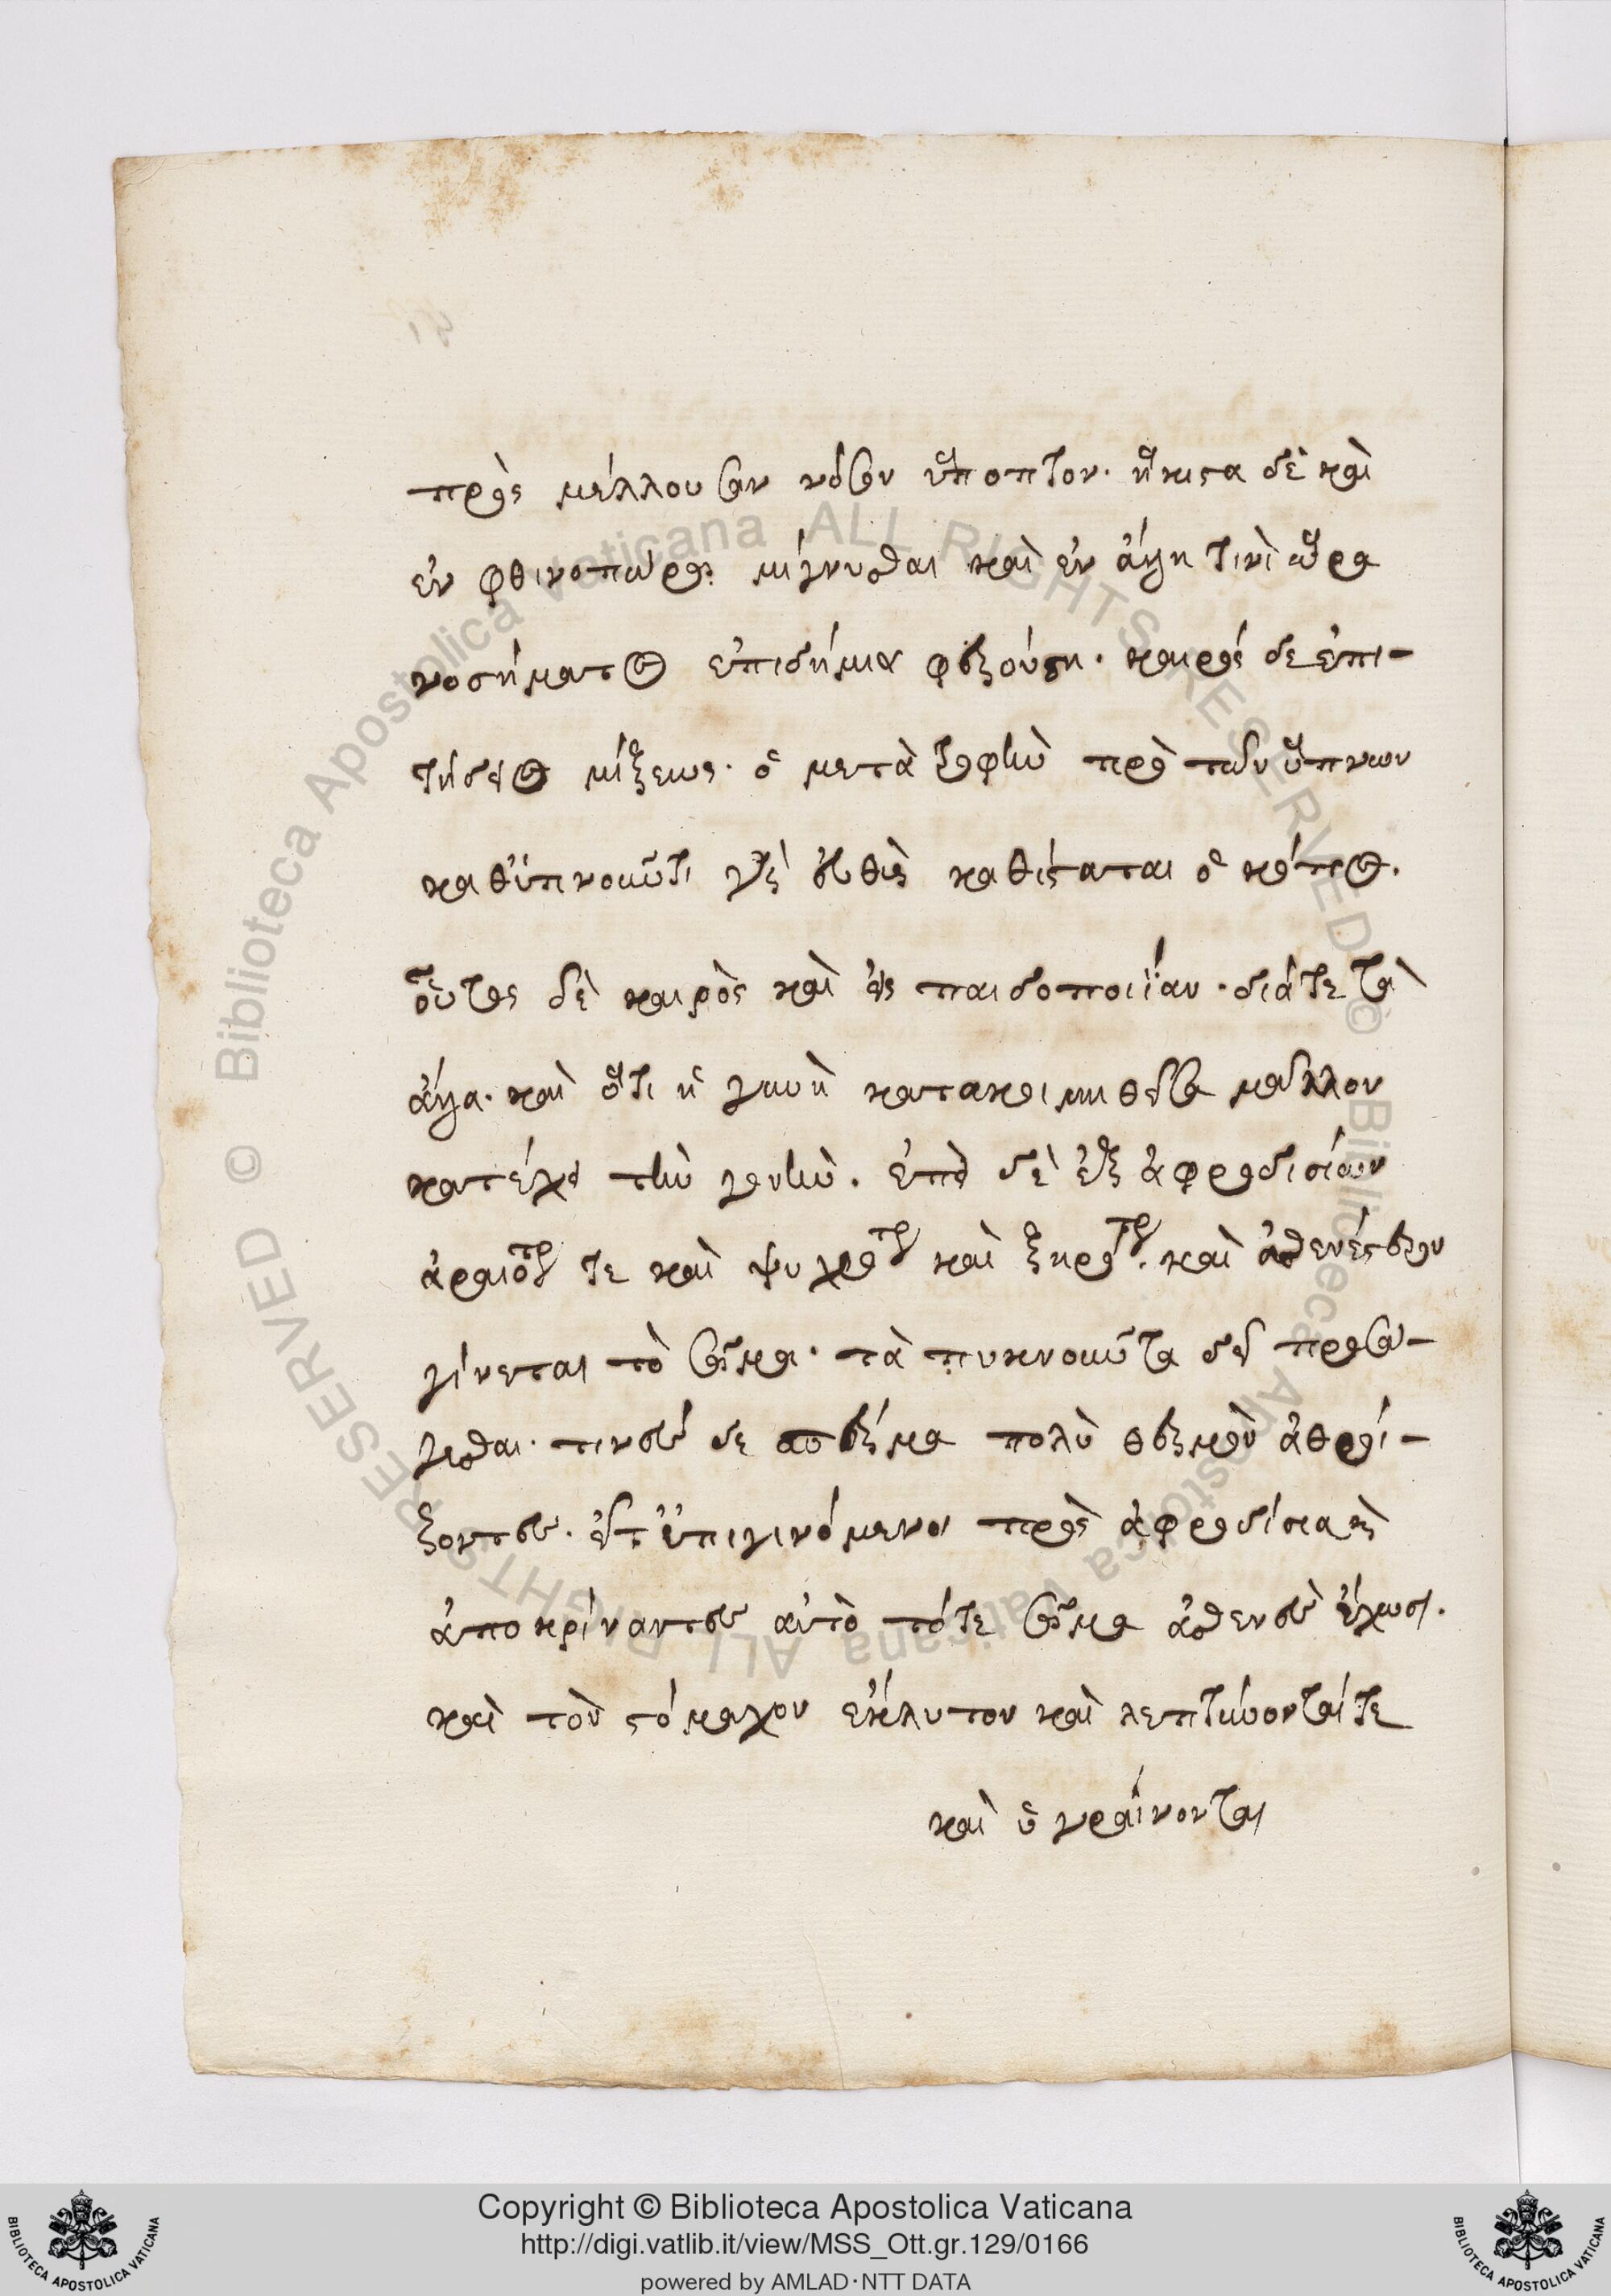 πρὸς μέλλουσαν νόσον ὕποπτον. ἥκιστα δὲ καὶ
ἐν φθινοπώρῳ μίγνυσθαι καὶ ἐν ἄλλη τινὶ ὥρα
νοσήματος ἐπιδήμια φερούση. καιρός δε ἐπι-
τήδειος μίξεως. ὁ μετὰ τροφὴν πρὸ τῶν ὕπνων
καθυπνοῦντι γὰρ εὐθὺς καθίσταται ὁ κόπος.
οὗτος δὲ καιρὸς καὶ εἰς παιδοποιΐαν. διά τε τὰ
ἄλλα. καὶ ὅτι ἡ γυνὴ κατακοιμηθεῖσα μᾶλλον
κατέχει τὴν γονὴν. ἐπεὶ δὲ ἐξ ἀφροδισίων
ἀραιότερον τε καὶ ψυχρότερον καὶ ξηρότερον. καὶ ἀσθενέστερον
γίνεται τὸ σῶμα. τὰ πυκνοῦντα δεῖ προσα-
γεσθαι. τινὲς δε σπέρμα πολὺ θερμὸν ἀθροί-
ζοντες. εἶτ' ἐπιγινόμενοι πρὸς ἀφροδίσια καὶ
ἀποκρίναντες αὐτὸ τότε σῶμα ἀσθενὲς ἔχωσι.
καὶ τὸν στόμαχον ἔκλυτον καὶ λεπτύνονταί τε
καὶ ὑγραίνονται
Copyright © Biblioteca Apostolica Vaticana
http://digi.vatlib.it/view/MSS_Ott.gr.129/0166
powered by AMLAD·NTT DATA
BIBLIOTECA APOSTOLICA VATICANA
BIBLIOTECA APOSTOLICA VATICANA
© Biblioteca Apostolica Vaticana ALL RIGHTS RESERVED © Biblioteca Apostolica Vaticana ALL RIGHTS RESERVED